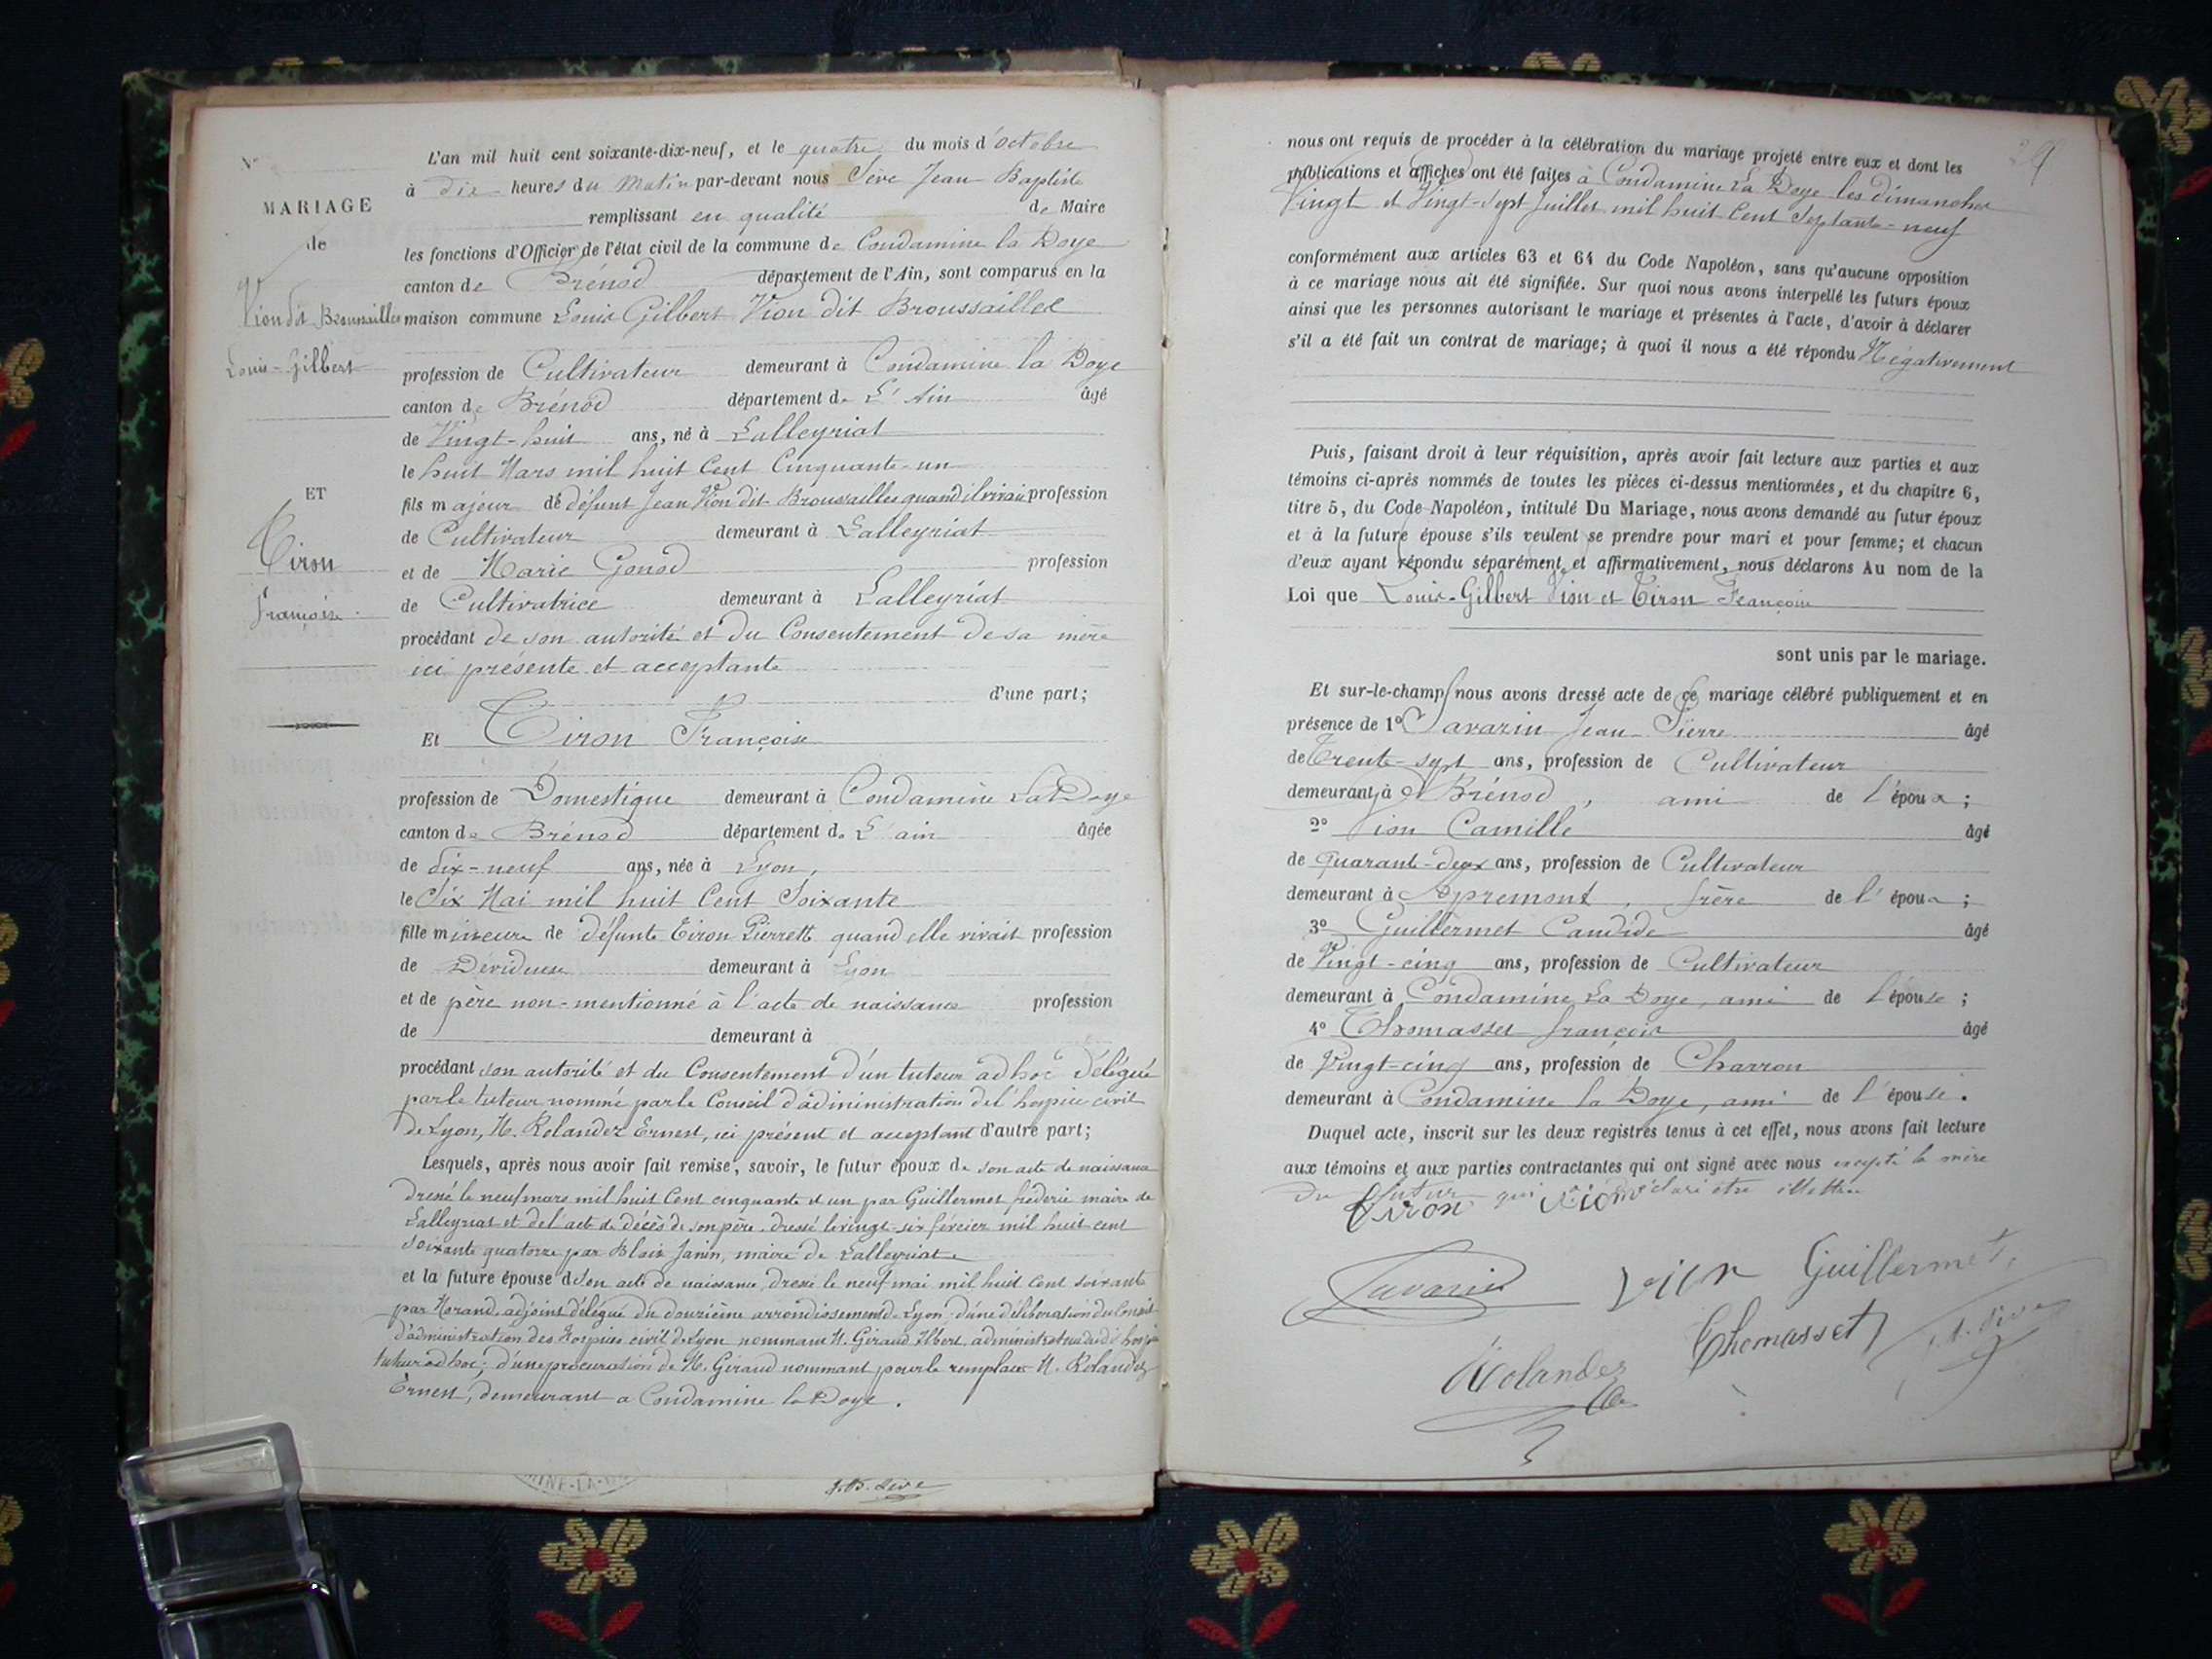 N°
MARIAGE
de
Vion dit Broussailles
Louis-Gilbert
ET
Tiron
Françoise
L'an mil huit cent soixante-dix-neuf, et le quatre du mois d'octobre
à dix heures du Matin par-devant nous Sève Jean Baptiste
remplissant en qualité de Maire
les fonctions d'Officier de l'état civil de la commune de Condamine la Doye
canton de Brénod département de l'Ain, sont comparus en la
maison commune Louis Gilbert Vion dit Broussailles
profession de Cultivateur demeurant à Condamine la Doye
canton de Brénod département de L'Ain âgé
de Vingt-huit ans, né à Lalleyriat
le huit Mars mil huit Cent Cinquante-un
fils majeur de défunt Jean Vion dit Broussailles quand il vivait profession
de Cultivateur demeurant à Lalleyriat
et de Marie Gonod profession
de Cultivatrice demeurant à Lalleyriat
procédant de son autorité et du Consentement de sa mère
ici présente et acceptante
d'une part;
Et Tiron Françoise
profession de Domestique demeurant à Condamine La Doye
canton de Brénod département de L'ain âgée
de dix-neuf ans, née à Lyon,
le Six Mai mil huit Cent Soixante
fille mineure de défunte Tiron Pierrette quand elle vivait profession
de Dévideuse demeurant à Lyon
et de père non-mentionné à l'acte de naissance profession
de demeurant à
procédant son autorité et du Consentement d'un tuteur ad hoc délégué
par le tuteur nommé par le Conseil d'administration de l'hospice civil
de Lyon, M. Rolandez Ernest, ici présent et acceptant d'autre part;
Lesquels, après nous avoir fait remise, savoir, le futur époux de son acte de naissance
dressé le neuf mars mil huit Cent cinquante et un par Guillermet fréderic maire de
Lalleyriat et de l'acte de décès de son père dressé le vingt-six février mil huit cent
soixante quatorze par Blaix Janin, maire de Lalleyriat
et la future épouse de son acte de naissance, dressé le neuf mai mil huit cent soixante
par Morand adjoint délégué du douzième arrondissement de Lyon; d'une délibération du Conseil
d'administration des hospices civil de Lyon nommant M. Giraud Albert, administrateur du dit hospice
tuteur ad hoc; d'une procuration de M. Giraud nommant pour le remplacer M. Rolandez
Ernest, demeurant a Condamine la Doye.
J.B. Sève
nous ont requis de procéder à la célébration du mariage projeté entre eux et dont les
publications et affiches ont été faites à Condamine La Doye les dimanches
Vingt et Vingt-Sept Juillet mil huit Cent Septante-neuf
conformément aux articles 63 et 64 du Code Napoléon, sans qu'aucune opposition
à ce mariage nous ait été signifiée. Sur quoi nous avons interpellé les futurs époux
ainsi que les personnes autorisant le mariage et présentes à l'acte, d'avoir à déclarer
s'il a été fait un contrat de mariage; à quoi il nous a été répondu Négativement
Puis, faisant droit à leur réquisition, après avoir fait lecture aux parties et aux
témoins ci-après nommés de toutes les pièces ci-dessus mentionnées, et du chapitre 6,
titre 5, du Code Napoléon, intitulé Du Mariage, nous avons demandé au futur époux
et à la future épouse s'ils veulent se prendre pour mari et pour femme; et chacun
d'eux ayant répondu séparément et affirmativement, nous déclarons Au nom de la
Loi que Louis-Gilbert Vion et Tiron Françoise
sont unis par le mariage.
Et sur-le-champ nous avons dressé acte de ce mariage célébré publiquement et en
présence de 1° Savarin Jean Pierre âgé
de Trente-sept ans, profession de Cultivateur
demeurant à Brénod, ami de l'époux;
2° Vion Camille âgé
de quarante-deux ans, profession de Cultivateur
demeurant à Apremont, frère de l'époux;
3° Guillermet Candide âgé
de Vingt-cinq ans, profession de Cultivateur
demeurant à Condamine La Doye, ami de l'épouse;
4° Thomasset françois âgé
de Vingt-cinq ans, profession de Charron
demeurant à Condamine la Doye, ami de l'épouse.
Duquel acte, inscrit sur les deux registres tenus à cet effet, nous avons fait lecture
aux témoins et aux parties contractantes qui ont signé avec nous excepté la mère
du futur qui a déclaré être illettrée
Tiron Vion
Savarin Vion Guillermet
Thomasset
Rolandez